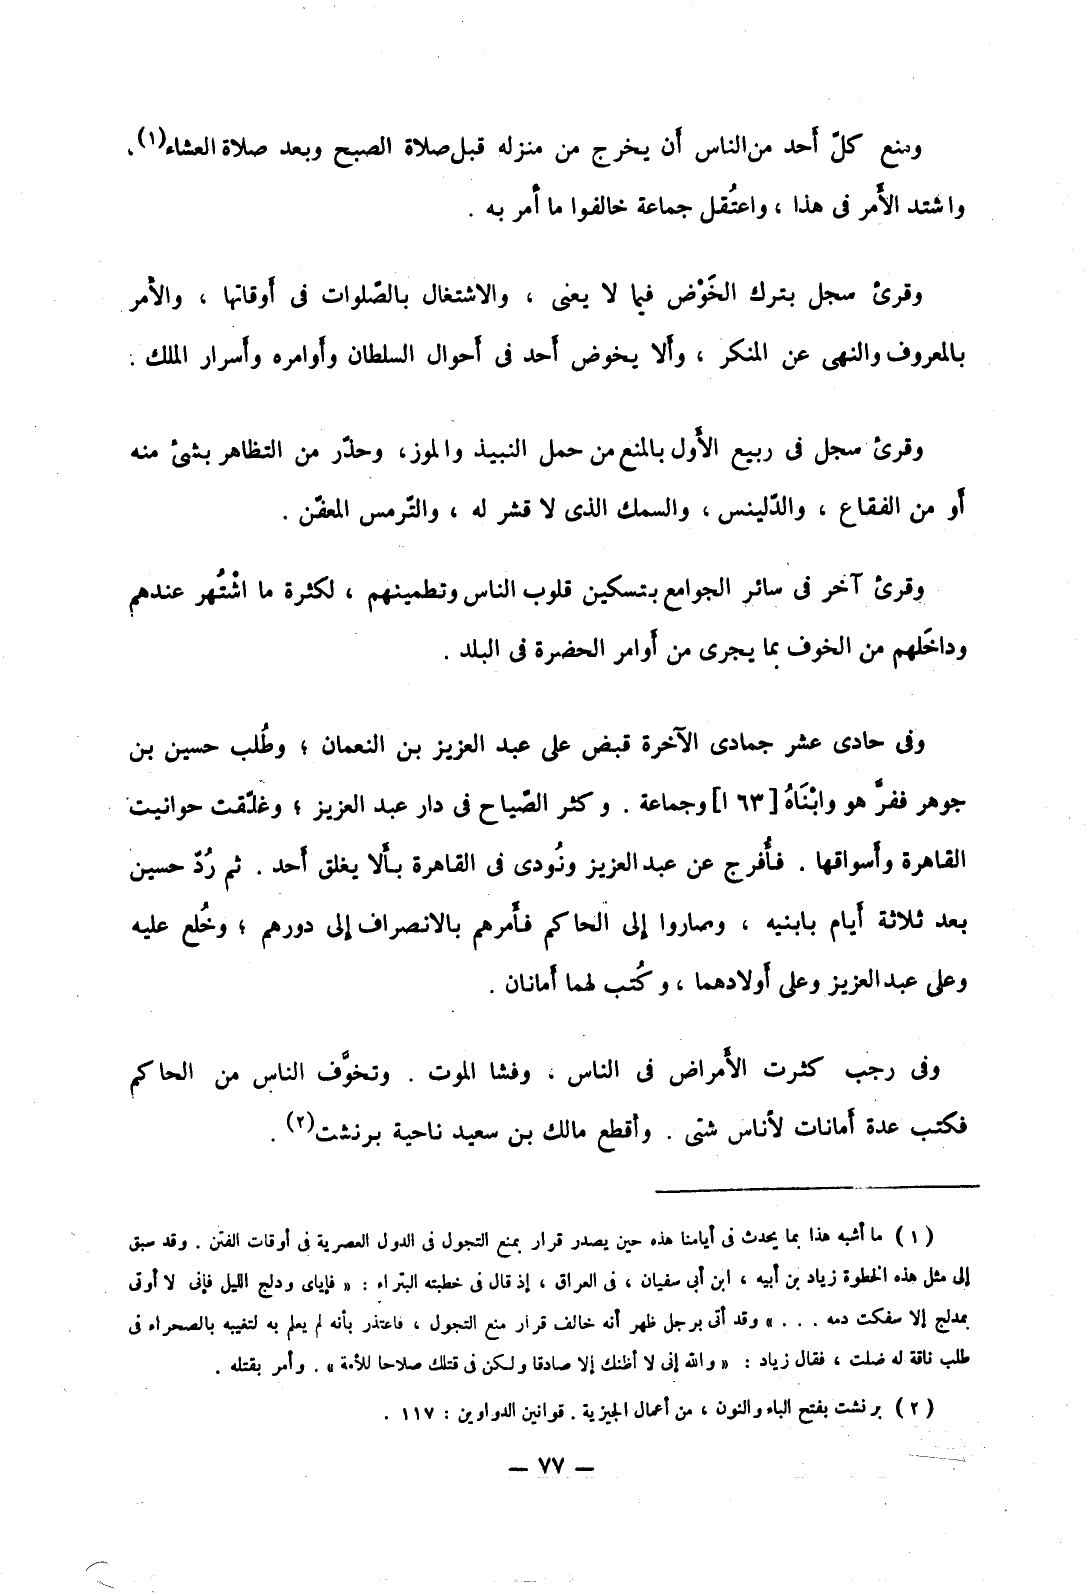 ومنع كلّ أحد من الناس أن يخرج من منزله قبل صلاة الصبح وبعد صلاة العشاء(١)،
واشتد الأمر فى هذا ، واعتُقل جماعة خالفوا ما أمر به .
وقرئ سجل بترك الخَوْض فيما لا يعنى ، والاشتغال بالصّلوات فى أوقاتها ، والأمر
بالمعروف والنهى عن المنكر ، وألا يخوض أحد فى أحوال السلطان وأوامره وأسرار الملك .
وقرئ سجل فى ربيع الأول بالمنع من حمل النبيذ والموز، وحذّر من التظاهر بشئ منه
أو من الفقاع ، والدّلينس ، والسمك الذى لا قشر له ، والتّرمس المعفّن .
وقرئ آخر فى سائر الجوامع بتسكين قلوب الناس وتطمينهم ، لكثرة ما اشْتُهر عندهم
وداخَلهم من الخوف بما يجرى من أوامر الحضرة فى البلد .
وفى حادى عشر جمادى الآخرة قبض على عبد العزيز بن النعمان ؛ وطُلب حسين بن
جوهر ففرَّ هو وابْنَاهُ [٦٣ ا] وجماعة . وكثر الصّياح فى دار عبد العزيز ؛ وغلّقت حوانيت
القاهرة وأسواقها . فأُفرج عن عبد العزيز ونُودى فى القاهرة بألا يغلق أحد . ثم رُدّ حسين
بعد ثلاثة أيام بابنيه ، وصاروا إلى الحاكم فأمرهم بالانصراف إلى دورهم ؛ وخُلع عليه
وعلى عبد العزيز وعلى أولادهما ، وكُتب لهما أمانان .
وفى رجب كثرت الأمراض فى الناس ، وفشا الموت . وتخوَّف الناس من الحاكم
فكتب عدة أمانات لأناس شتى . وأقطع مالك بن سعيد ناحية برنشت(٢) .
(١) ما أشبه هذا بما يحدث فى أيامنا هذه حين يصدر قرار بمنع التجول فى الدول العصرية فى أوقات الفتن . وقد سبق
إلى مثل هذه الخطوة زياد بن أبيه ، ابن أبى سفيان ، فى العراق ، إذ قال فى خطبته البتراء : « فإياى ودلج الليل فإنى لا أوتى
بمدلج إلا سفكت دمه . . . » وقد أتى برجل ظهر أنه خالف قرار منع التجول ، فاعتذر بأنه لم يعلم به لتغيبه بالصحراء فى
طلب ناقة له ضلت ، فقال زياد : « والله إنى لا أظنك إلا صادقا ولكن فى قتلك صلاحا للأمة » . وأمر بقتله .
(٢) برنشت بفتح الباء والنون ، من أعمال الجيزية . قوانين الدواوين : ١١٧ .
— ٧٧ —